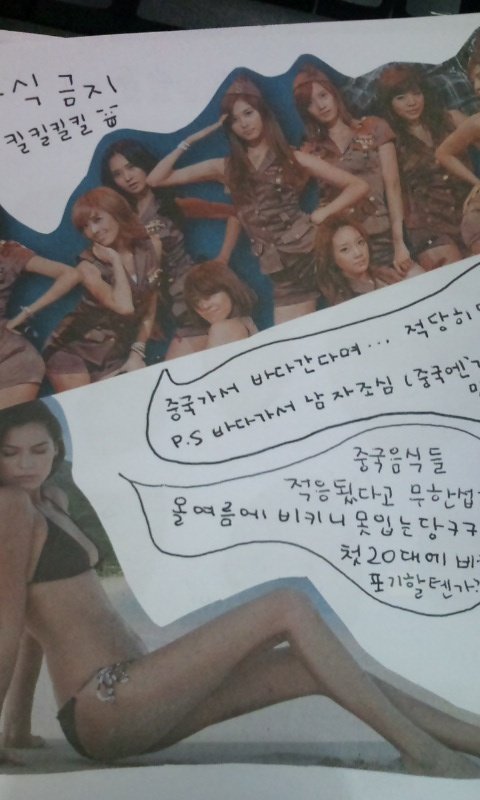 식 금지
킬킬킬킬
중국가서 바다간다며... 적당히
P.S 바다가서 남자조심 (중국엔
중국음식들
적응됐다고 무한섭
올여름에 비키니 못입는당구구
첫20대에 비
포기할텐가?